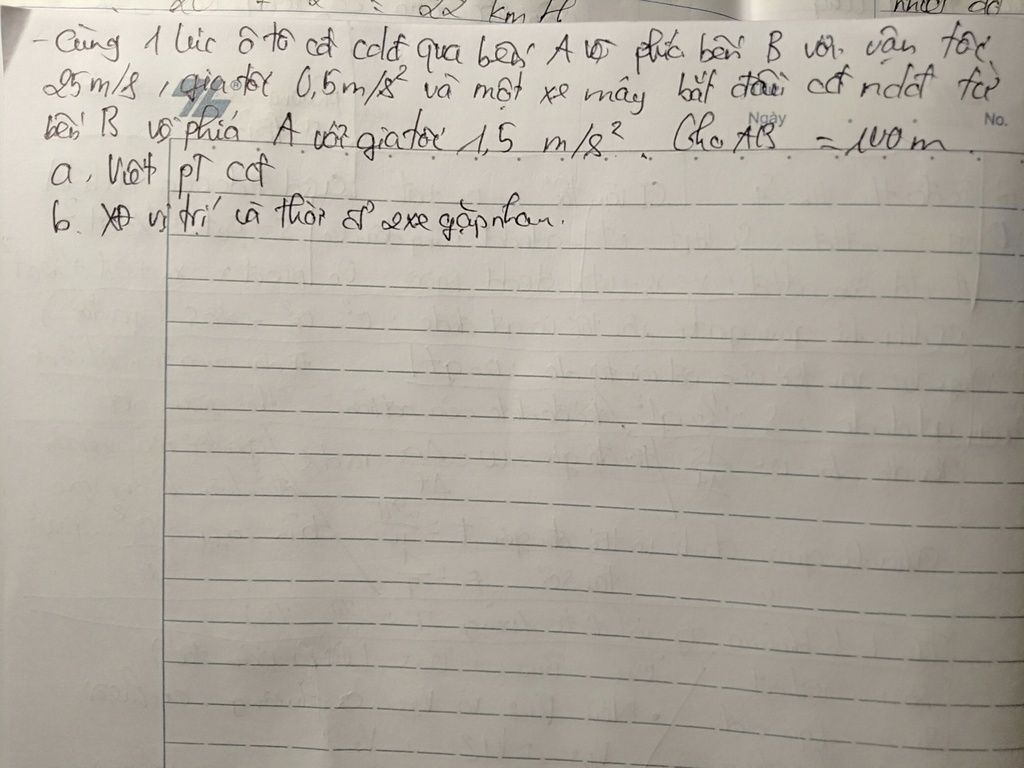 22 km H
nhiệt độ
- Cùng 1 lúc ô tô cđ cdđ qua bến A về phía bến B với vận tốc
25m/s, gia tốc 0,5m/s² và một xe mây bắt đầu cđ ndđ từ
bến B về phía A với gia tốc 1,5 m/s². Cho AB = 100m.
Ngày
No.
a, Viết pT cđ
b. XĐ vị trí và thời 2xe gặp nhau.